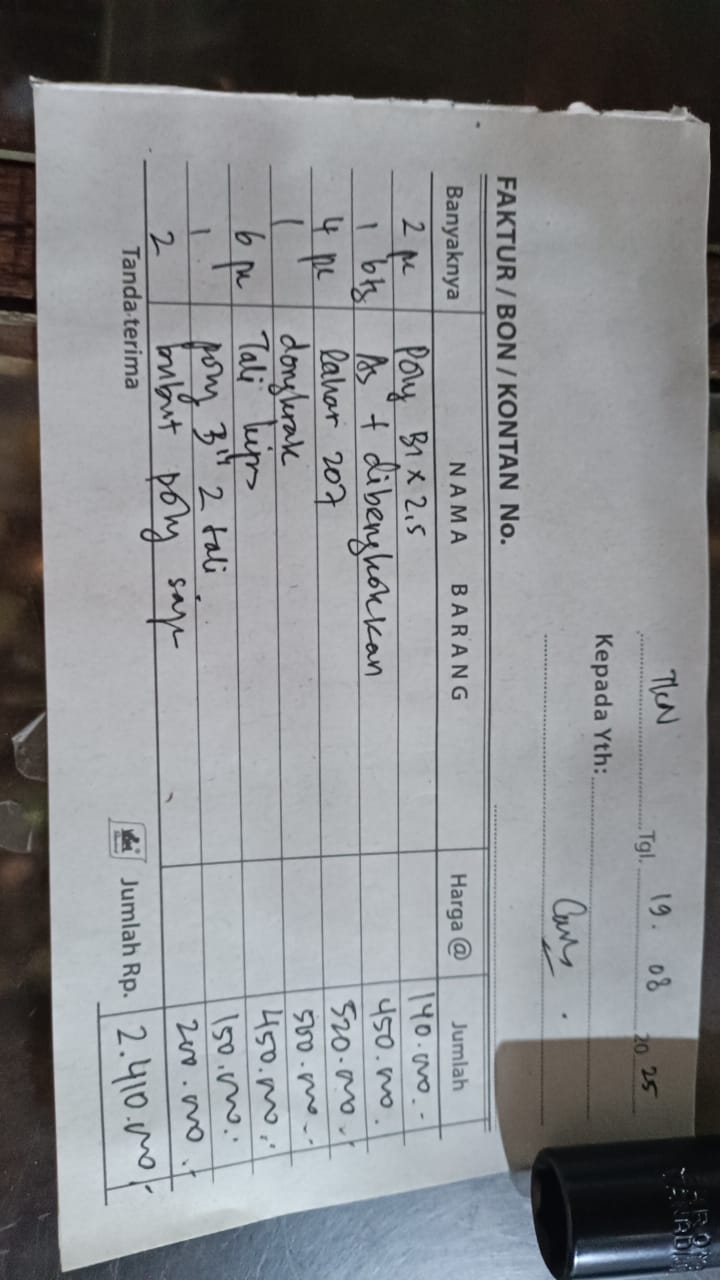 TKN Tgl. 19. 08 2025
Kepada Yth:
FAKTUR / BON / KONTAN No.
Banyaknya NAMA BARANG Harga @ Jumlah
2 pc Poly B1 x 2,5 140.000.-
1 btg As + dibengkokkan 450.000.
4 pc lahar 207 520.000.-
1 dongkrak 500.000.-
6 pc Tali kips 450.000.-
1 poly 3" 2 tali 150.000.-
2 bubut poly 200.000.-
Tanda terima Jumlah Rp. 2.410.000.-